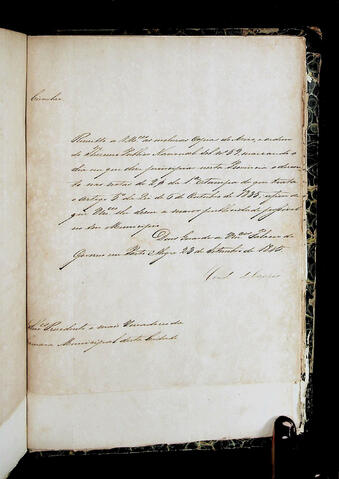 Circular
Remetto a V.Mces as inclusas Copias do Aviso, e ordem
do Thesouro Publico Nacional de Nº 59, marcando o
dia em que deve principiar nesta Provincia o descon
to nas notas de 2$ da 1ª Estampa de que trata
o Artigo 5º da Lei de 6 de Outubro de 1835, afim de
que Vmces lhe deem a maior publicidade possivel
no seu Municipio.
Deos Guarde a Vmces Palacio do
Governo em Porto Alegre 23 de Setembro de 1845.
Conde de Caxias
Snrs Presidente e mais Vereadores da
Camara Municipal desta Cidade